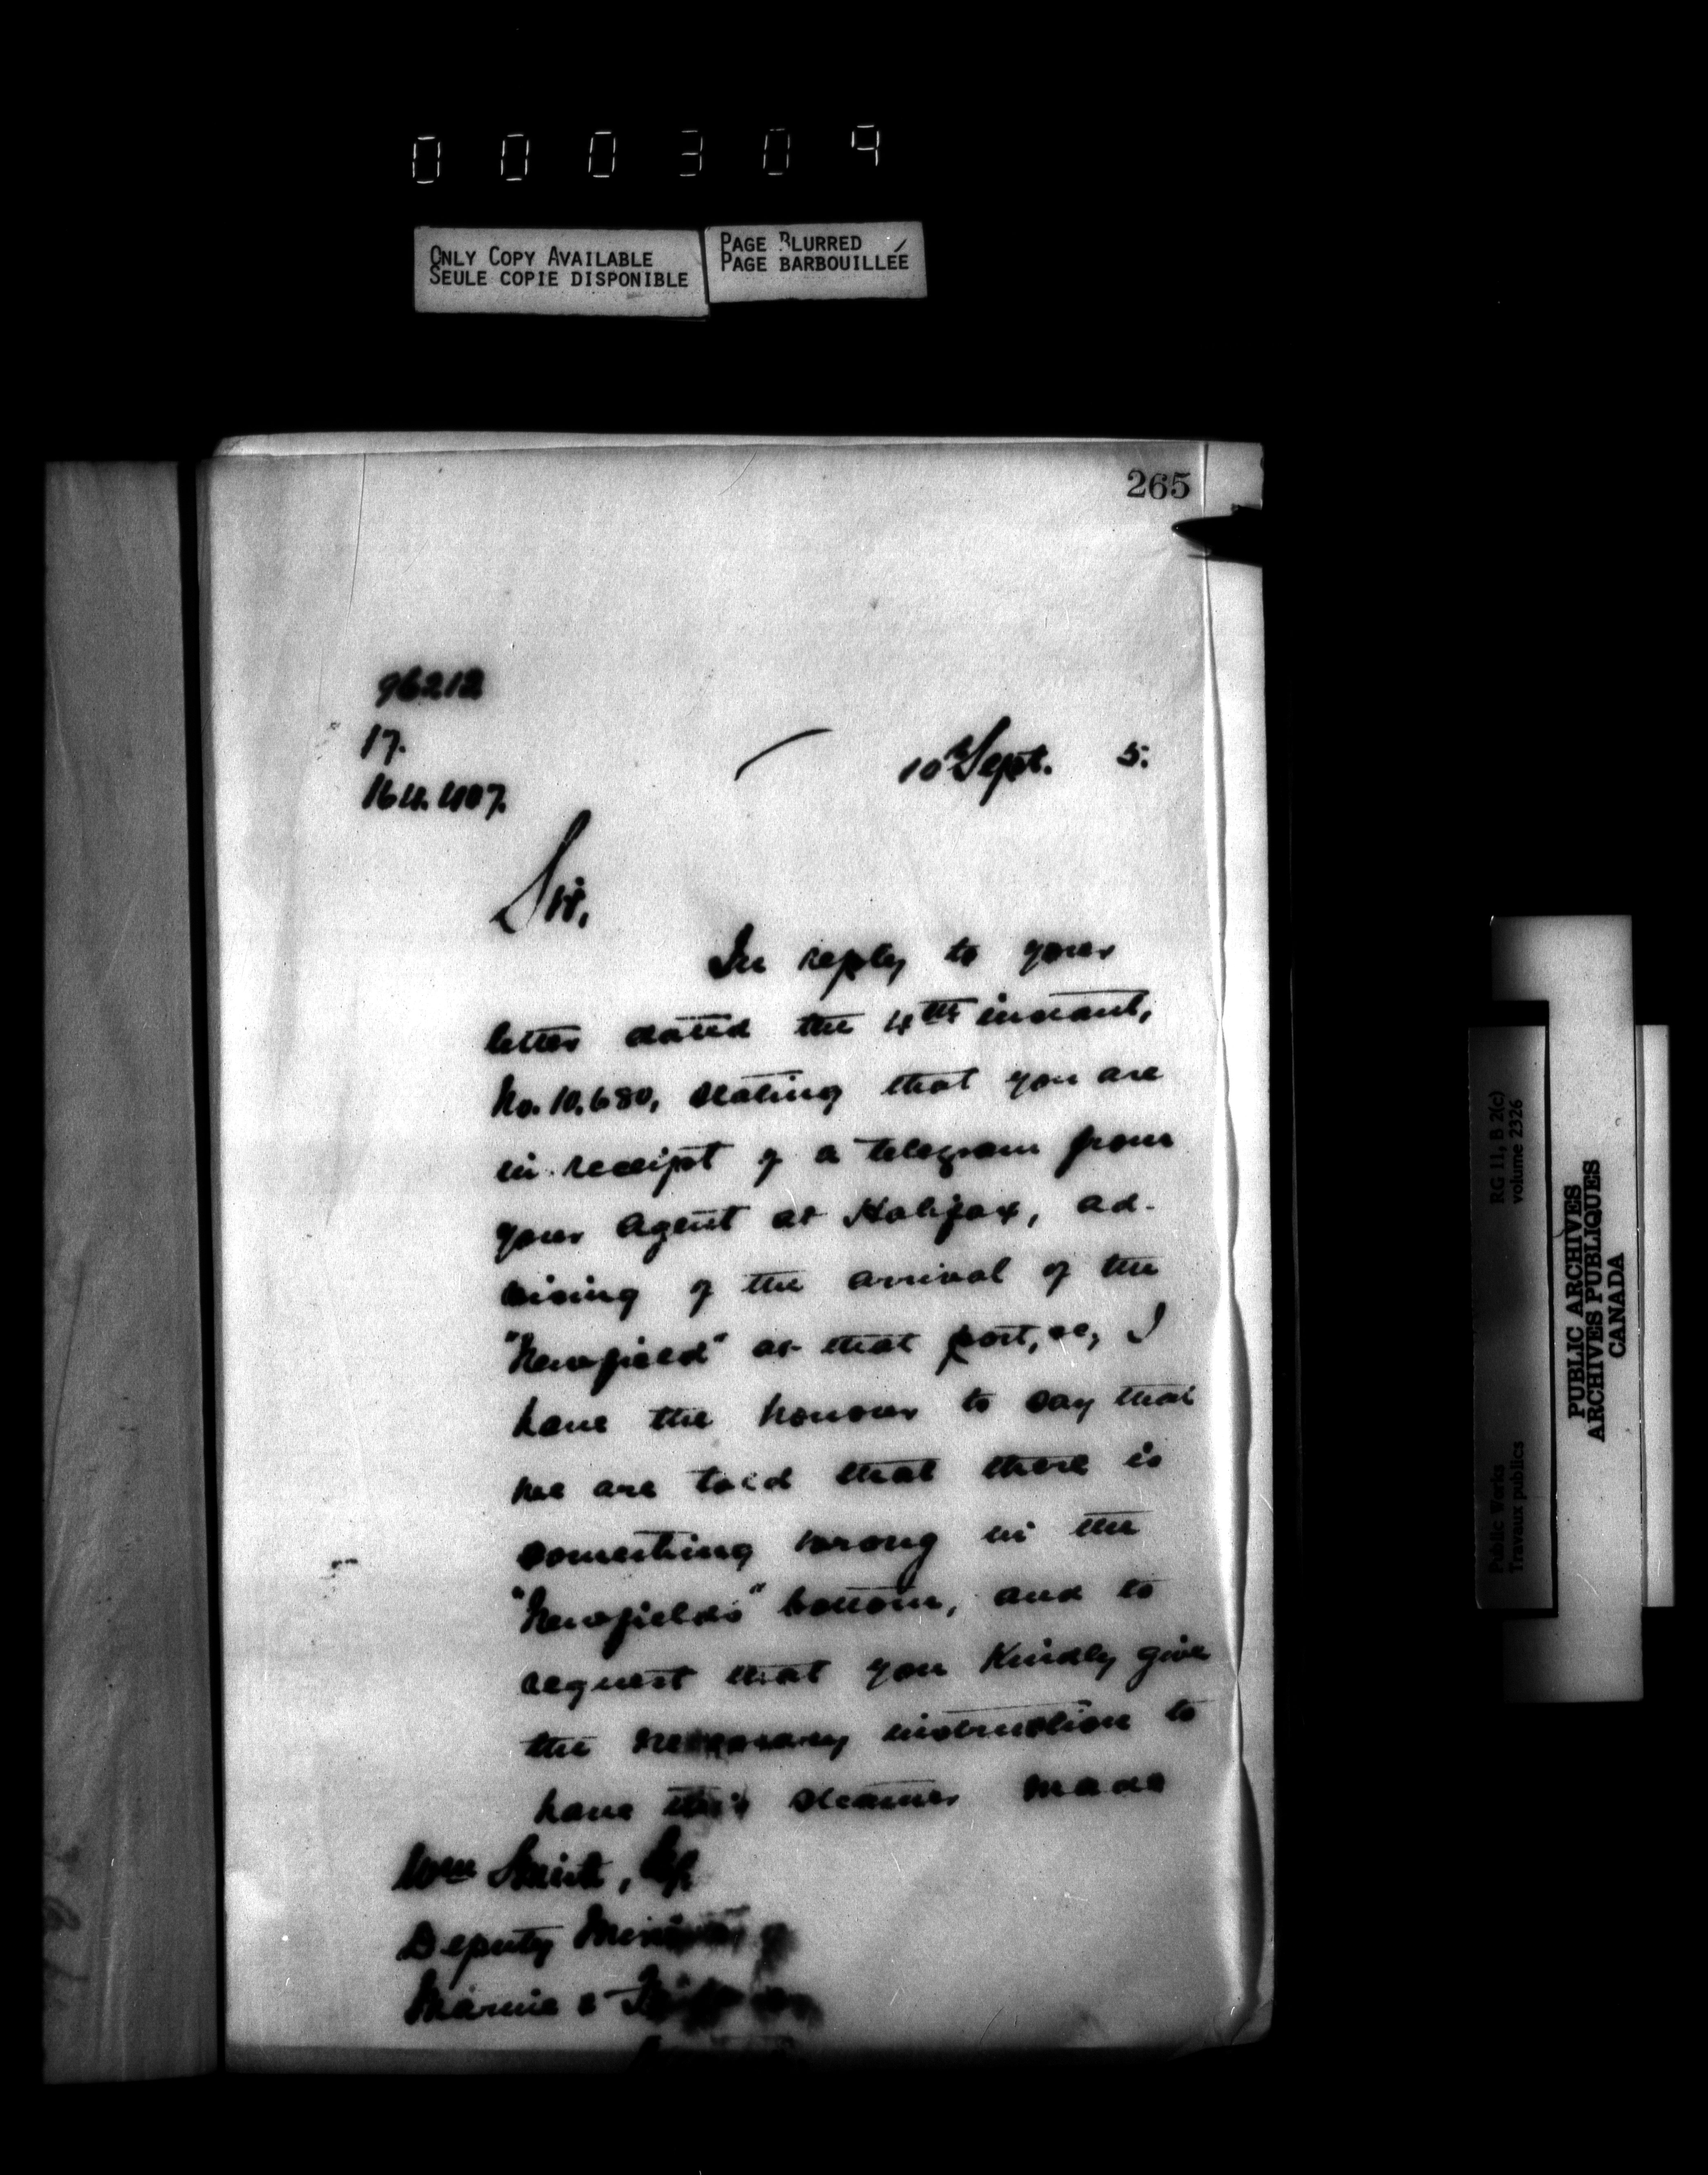 000304
ONLY COPY AVAILABLE
SEULE COPIE DISPONIBLE
PAGE BLURRED
PAGE BARBOUILLÉE
265
96212
17.
164.407.
10th Sept. 5.
Sir,
In reply to your
letter dated the 4th instant,
No. 10,680, stating that you are
in receipt of a telegram from
your Agent at Halifax, ad-
vising of the arrival of the
"Newfield" at that port, &c, I
have the honour to say that
we are told that there is
something wrong in the
"Newfields" bottom, and to
request that you kindly give
the necessary instruction to
have this steamer made
Wm Smith, Esq
Deputy Minister of
Marine & Fisheries
RG 11, B 2(c)
volume 2326
Public Works
Travaux publics
PUBLIC ARCHIVES
ARCHIVES PUBLIQUES
CANADA